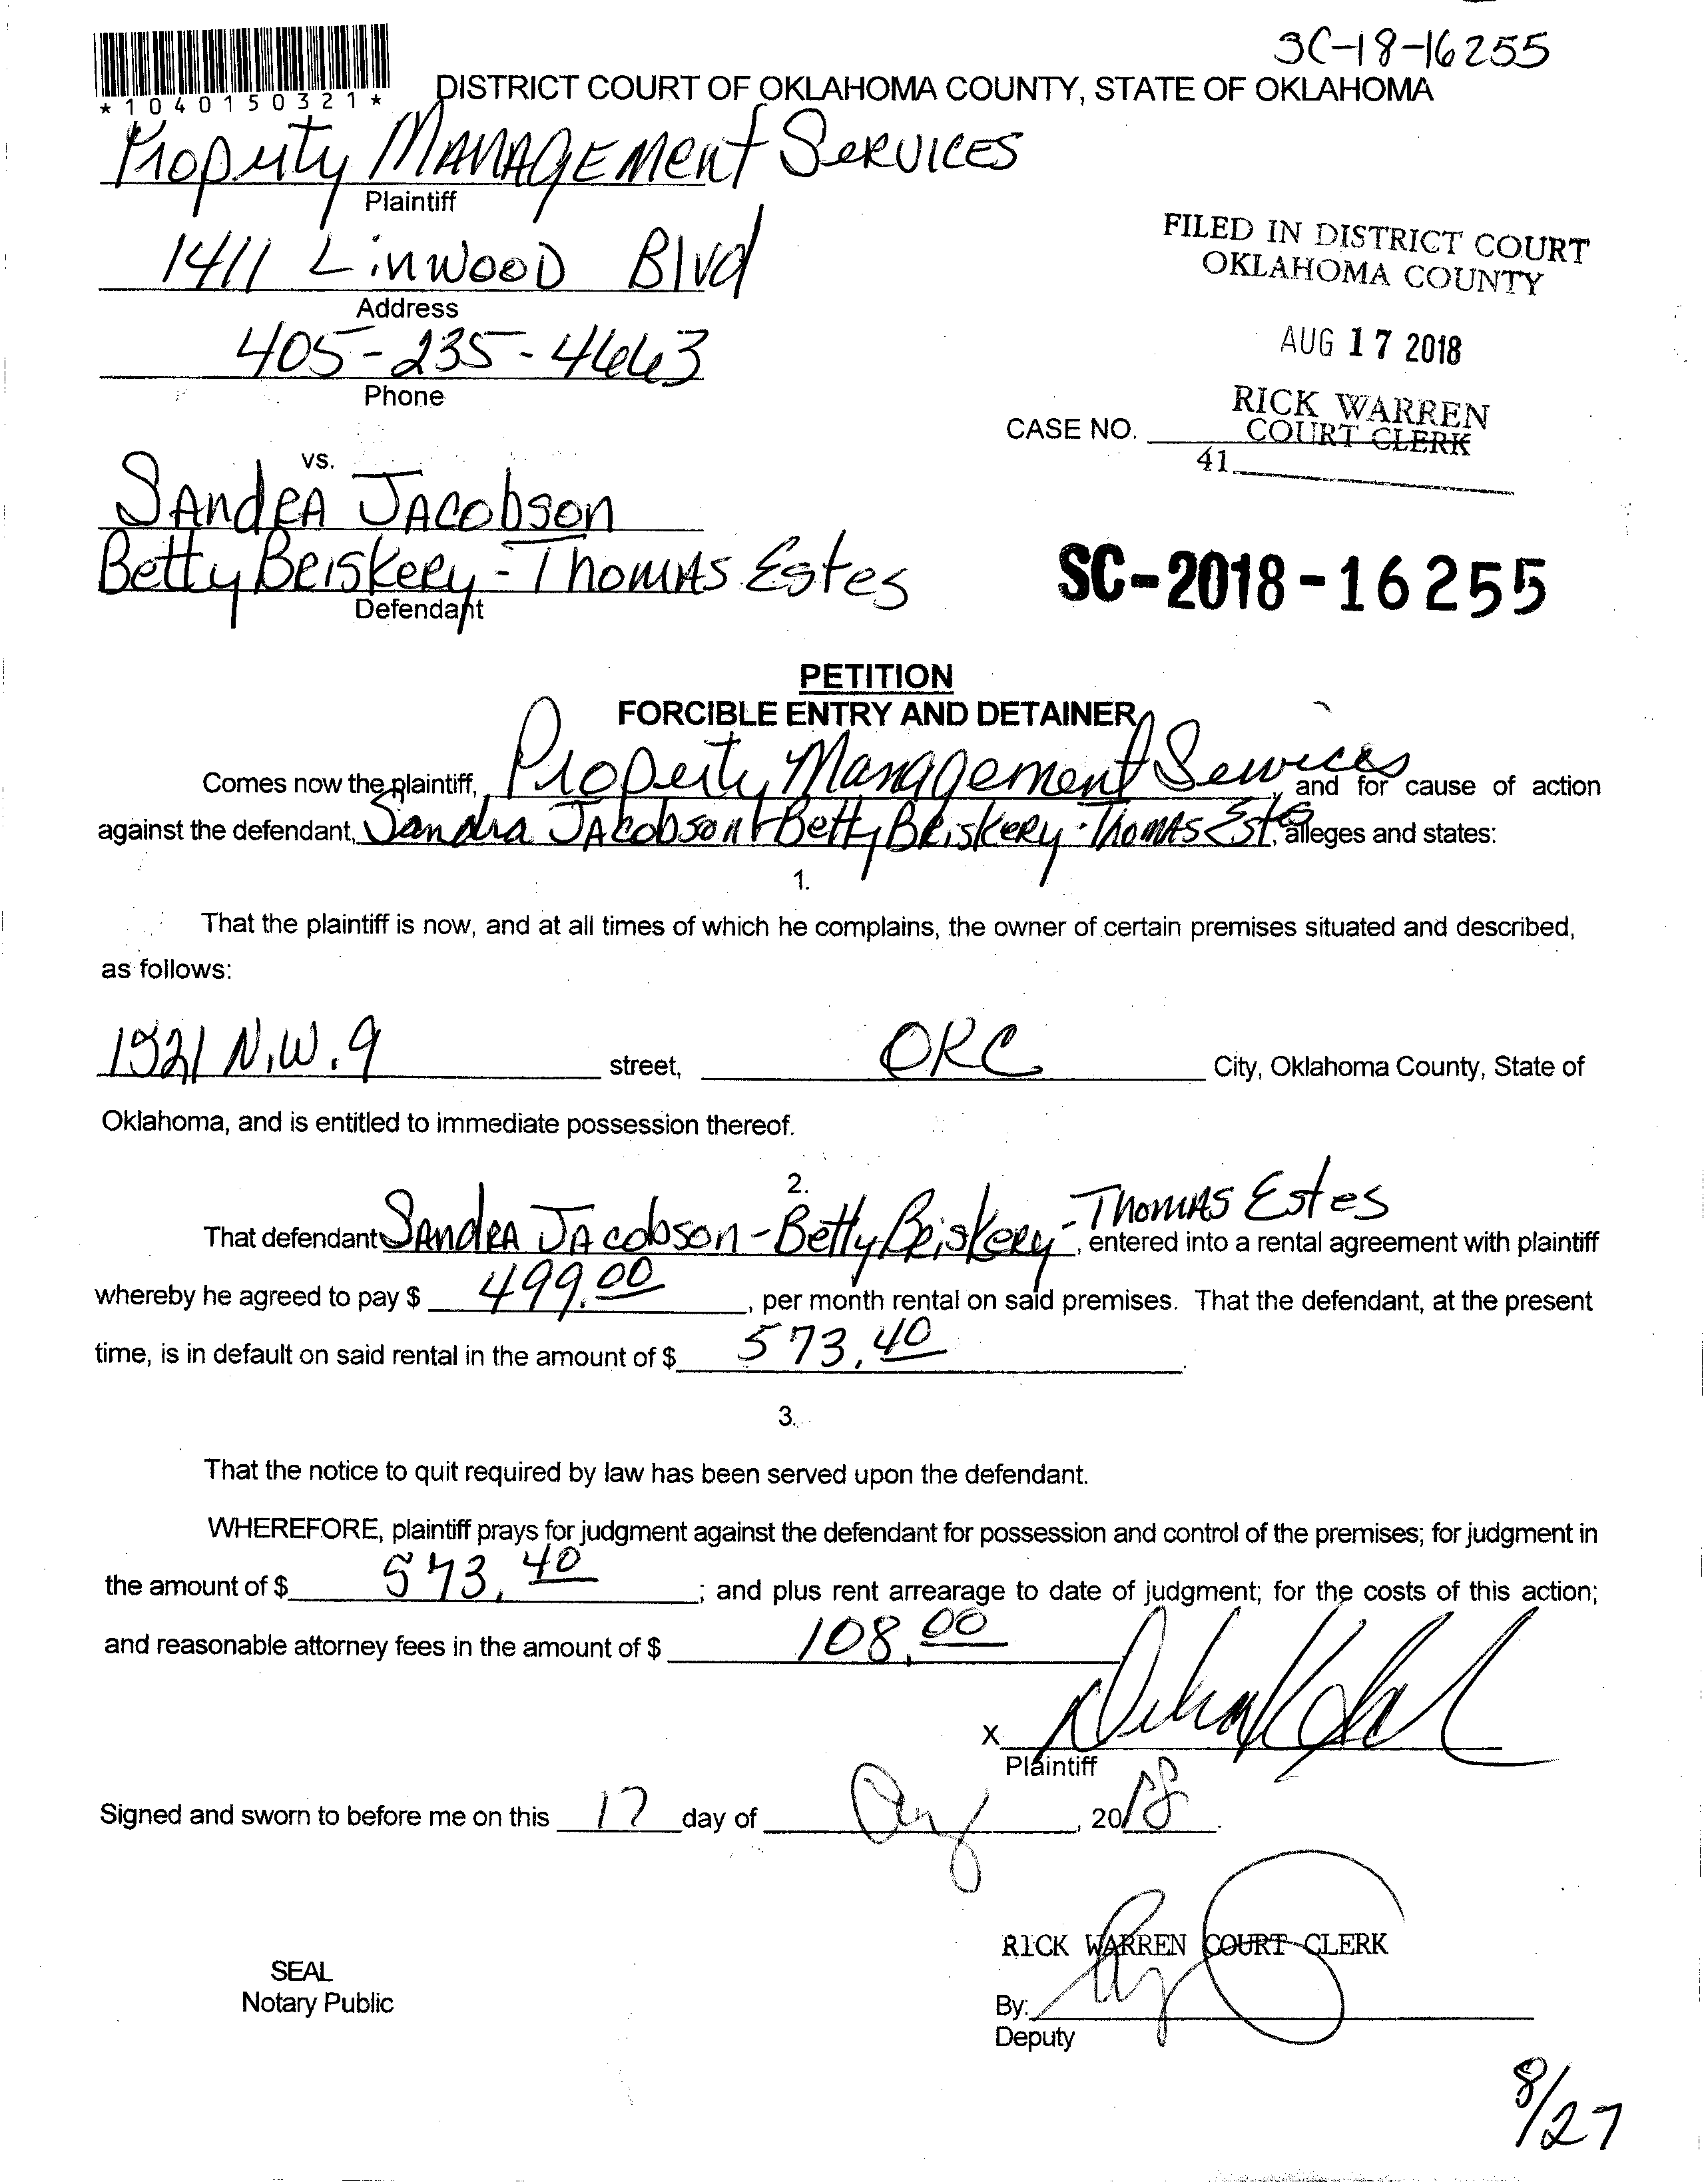 SC-18-16255
*1040150321*
DISTRICT COURT OF OKLAHOMA COUNTY, STATE OF OKLAHOMA
Property Management Services
Plaintiff
1411 Linwood Blvd
Address
405-235-4663
Phone
FILED IN DISTRICT COURT
OKLAHOMA COUNTY
AUG 17 2018
RICK WARREN
COURT CLERK
41
CASE NO.
vs.
Sandra Jacobson
Betty Briskery - Thomas Estes
Defendant
SC-2018-16255
PETITION
FORCIBLE ENTRY AND DETAINER
Comes now the plaintiff, Property Management Services, and for cause of action
against the defendant, Sandra Jacobson Betty Briskery - Thomas Estes, alleges and states:
1.
That the plaintiff is now, and at all times of which he complains, the owner of certain premises situated and described,
as follows:
1521 N.W. 9 street, OKC City, Oklahoma County, State of
Oklahoma, and is entitled to immediate possession thereof.
2.
That defendant Sandra Jacobson - Betty Briskery - Thomas Estes, entered into a rental agreement with plaintiff
whereby he agreed to pay $ 499.00, per month rental on said premises. That the defendant, at the present
time, is in default on said rental in the amount of $ 573.40.
3.
That the notice to quit required by law has been served upon the defendant.
WHEREFORE, plaintiff prays for judgment against the defendant for possession and control of the premises; for judgment in
the amount of $ 573.40; and plus rent arrearage to date of judgment; for the costs of this action;
and reasonable attorney fees in the amount of $ 108.00.
X
Plaintiff
Signed and sworn to before me on this 17 day of Aug, 2018.
RICK WARREN COURT CLERK
SEAL
Notary Public
By:
Deputy
8/27